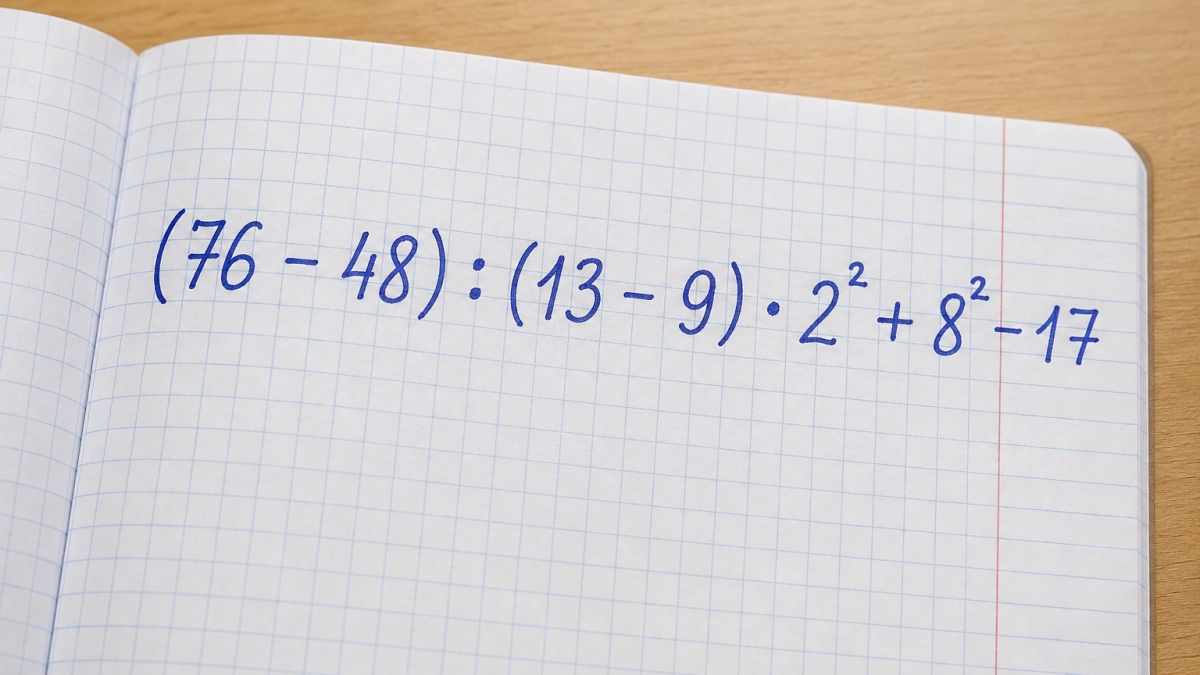 (76 - 48) : (13 - 9) · 2² + 8² - 17